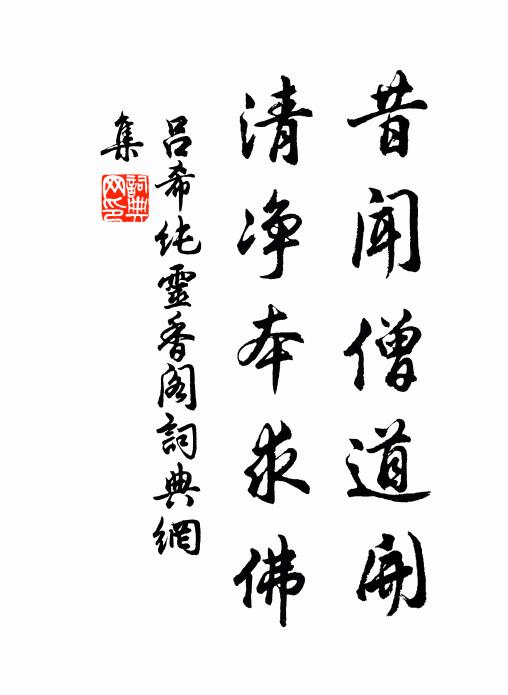 昔聞僧道開
清净本求佛
呂希純靈香閣詞典網
集
詞典
网印